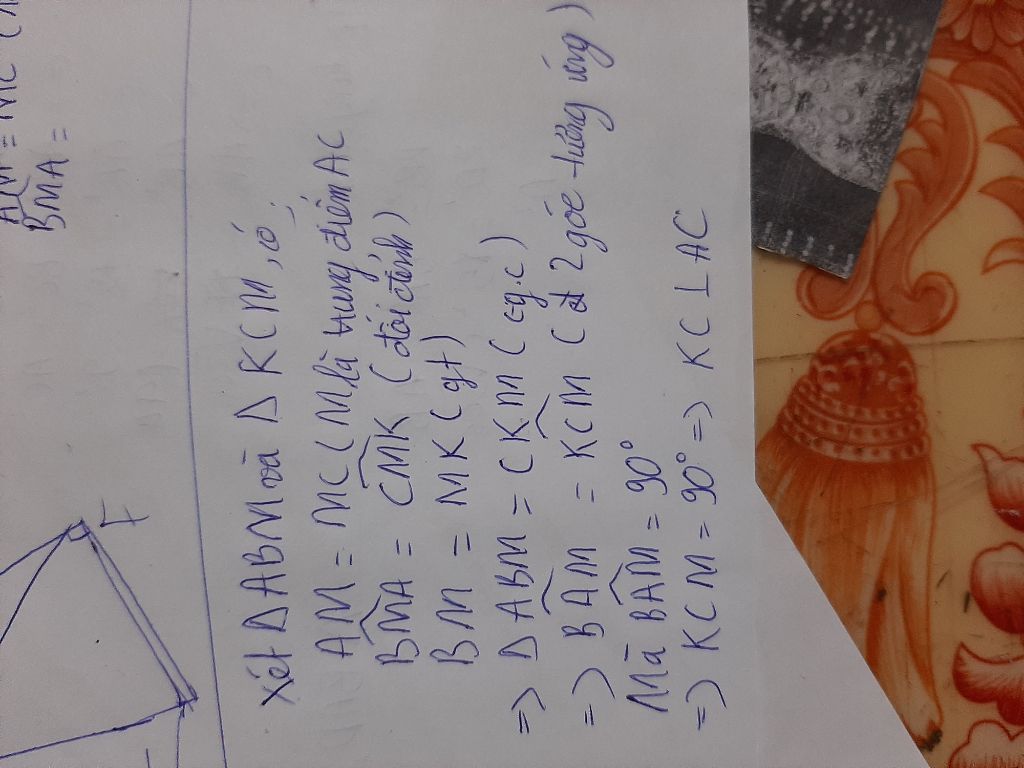 AM = MC (M
BMA =
F
Xét Δ ABM và Δ KCM, có:
AM = MC (M là trung điểm AC
BMA = CMK (đối đỉnh)
BM = MK (gt)
=> Δ ABM = CKM (cg.c)
=> BAM = KCM (2 góc tương ứng)
Mà BAM = 90°
=> KCM = 90° => KC ⊥ AC